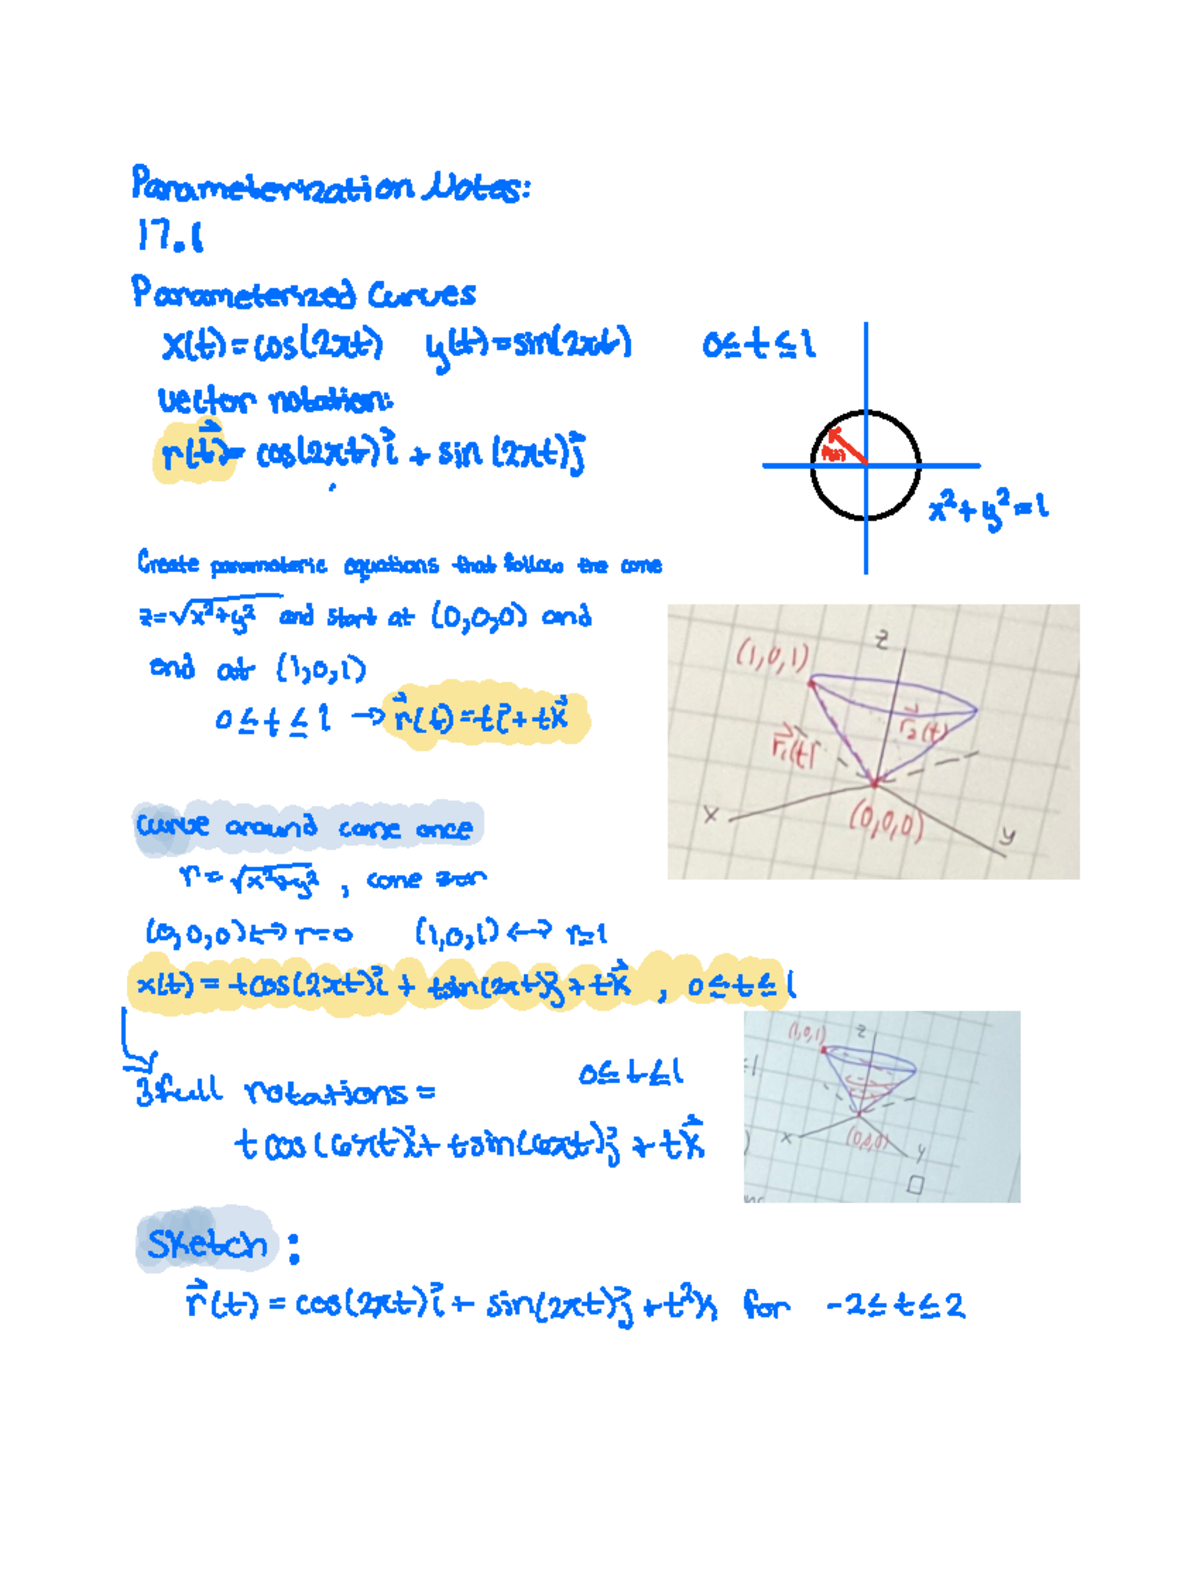 Parameterization Notes:
17.1
Parameterized Curves
x(t)=cos(2πt) y(t)=sin(2πt) 0≤t≤1
vector notation:
r(t)= cos(2πt)i + sin(2πt)j
x²+y²=1
Create parametric equations that follow the cone
z=√x²+y² and start at (0,0,0) and
end at (1,0,1)
0≤t≤1 → r(t)=ti+tk
(1,0,1) z
r₂(t)
r₁(t)
x (0,0,0) y
curve around cone once
r=√x²+y², cone z=r
(0,0,0)↔r=0 (1,0,1)↔r=1
x(t)= tcos(2πt)i + tsin(2πt)j + tk, 0≤t≤1
3 full rotations = 0≤t≤1
tcos(6πt)i + tsin(6πt)j + tk
(1,0,1) z
x (0,0,0) y
Sketch:
r(t)= cos(2πt)i + sin(2πt)j + t²k for -2≤t≤2